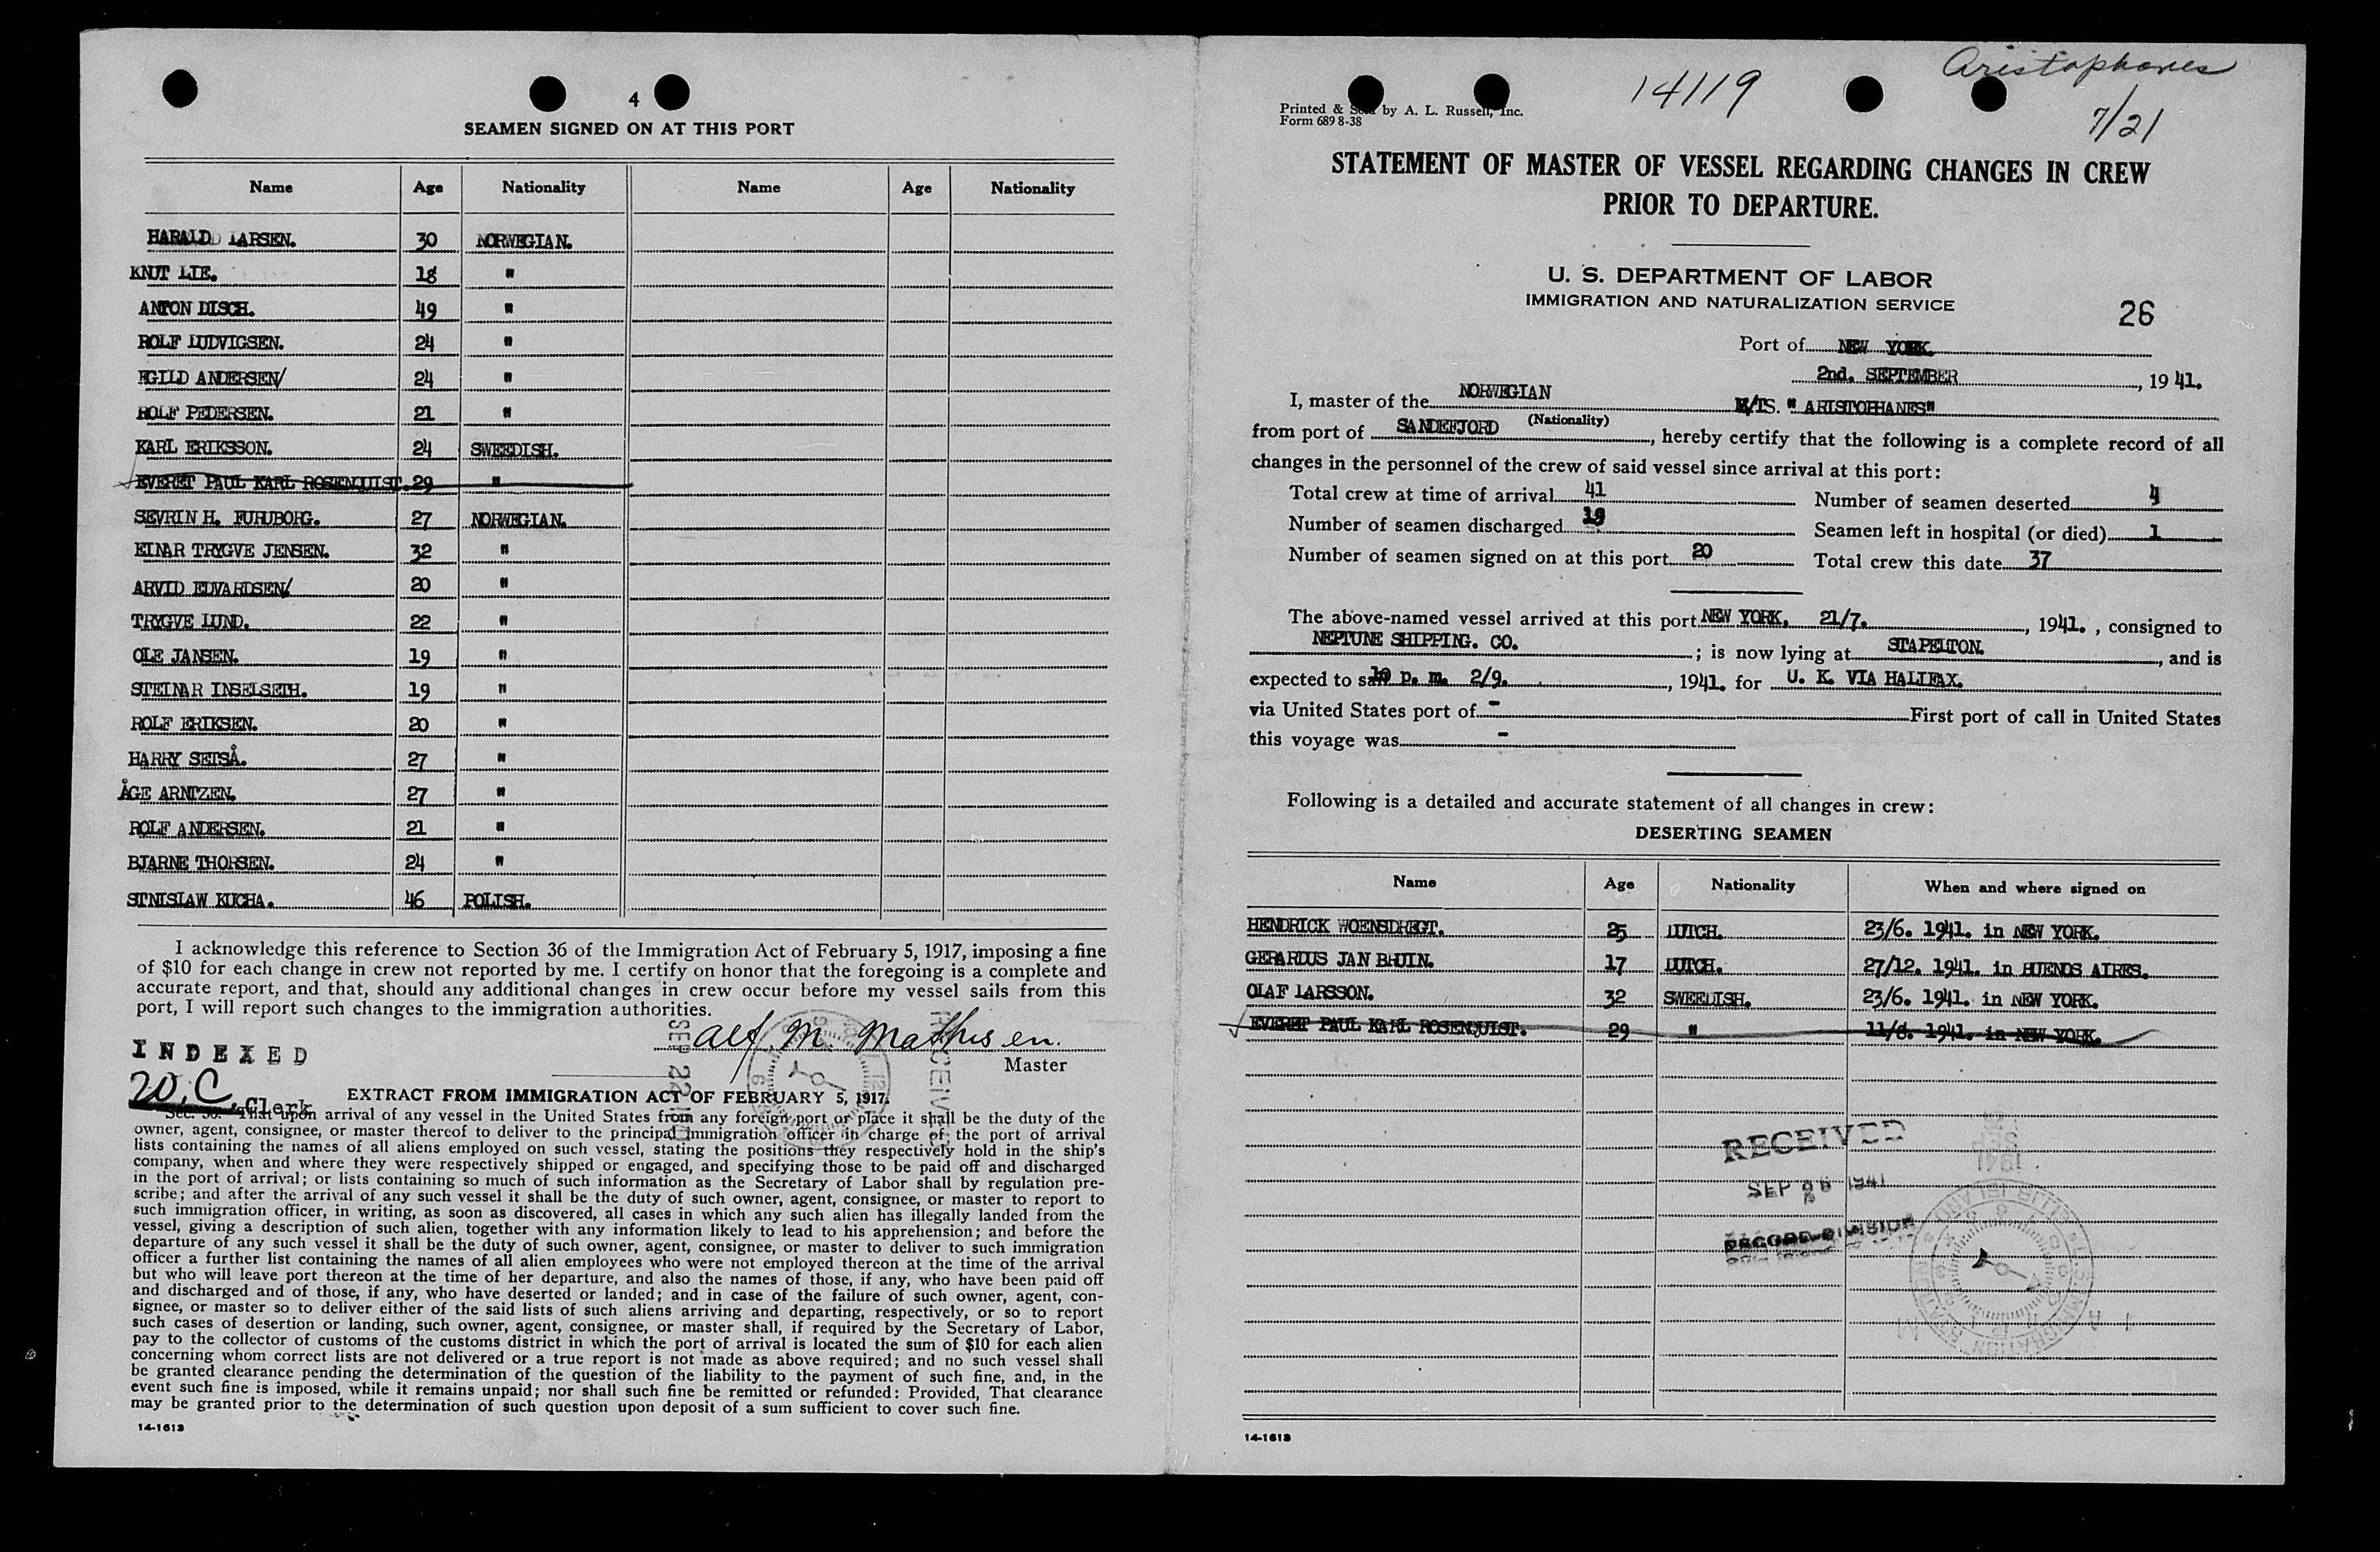 4
SEAMEN SIGNED ON AT THIS PORT
Name Age Nationality Name Age Nationality
HARALD LARSEN. 30 NORWEGIAN.
KNUT LIE. 18 "
ANTON DISCH. 49 "
ROLF LUDVIGSEN. 24 "
EGILD ANDERSEN/ 24 "
ROLF PEDERSEN. 21 "
KARL ERIKSSON. 24 SWEEDISH.
EVERET PAUL KARL ROSENQUIST. 29 "
SEVRIN H. FURUBORG. 27 NORWEGIAN.
EINAR TRYGVE JENSEN. 32 "
ARVID EDVARDSEN/ 20 "
TRYGVE LUND. 22 "
OLE JANSEN. 19 "
STEINAR INSELSETH. 19 "
ROLF ERIKSEN. 20 "
HARRY SETSÅ. 27 "
ÅGE ARNTZEN. 27 "
ROLF ANDERSEN. 21 "
BJARNE THORSEN. 24 "
STNISLAW KUCHA. 46 POLISH.
I acknowledge this reference to Section 36 of the Immigration Act of February 5, 1917, imposing a fine
of $10 for each change in crew not reported by me. I certify on honor that the foregoing is a complete and
accurate report, and that, should any additional changes in crew occur before my vessel sails from this
port, I will report such changes to the immigration authorities.
Alf. M. Mathisen.
Master
INDEXED
W.C. Clerk
EXTRACT FROM IMMIGRATION ACT OF FEBRUARY 5, 1917.
Sec. 36. That upon arrival of any vessel in the United States from any foreign port or place it shall be the duty of the
owner, agent, consignee, or master thereof to deliver to the principal immigration officer in charge of the port of arrival
lists containing the names of all aliens employed on such vessel, stating the positions they respectively hold in the ship's
company, when and where they were respectively shipped or engaged, and specifying those to be paid off and discharged
in the port of arrival; or lists containing so much of such information as the Secretary of Labor shall by regulation pre-
scribe; and after the arrival of any such vessel it shall be the duty of such owner, agent, consignee, or master to report to
such immigration officer, in writing, as soon as discovered, all cases in which any such alien has illegally landed from the
vessel, giving a description of such alien, together with any information likely to lead to his apprehension; and before the
departure of any such vessel it shall be the duty of such owner, agent, consignee, or master to deliver to such immigration
officer a further list containing the names of all alien employees who were not employed thereon at the time of the arrival
but who will leave port thereon at the time of her departure, and also the names of those, if any, who have been paid off
and discharged and of those, if any, who have deserted or landed; and in case of the failure of such owner, agent, con-
signee, or master so to deliver either of the said lists of such aliens arriving and departing, respectively, or so to report
such cases of desertion or landing, such owner, agent, consignee, or master shall, if required by the Secretary of Labor,
pay to the collector of customs of the customs district in which the port of arrival is located the sum of $10 for each alien
concerning whom correct lists are not delivered or a true report is not made as above required; and no such vessel shall
be granted clearance pending the determination of the question of the liability to the payment of such fine, and, in the
event such fine is imposed, while it remains unpaid; nor shall such fine be remitted or refunded: Provided, That clearance
may be granted prior to the determination of such question upon deposit of a sum sufficient to cover such fine.
14-1613
Aristophanes
14119
7/21
Printed & Sold by A. L. Russell, Inc.
Form 689 8-38
STATEMENT OF MASTER OF VESSEL REGARDING CHANGES IN CREW
PRIOR TO DEPARTURE.
U. S. DEPARTMENT OF LABOR
IMMIGRATION AND NATURALIZATION SERVICE
26
Port of NEW YORK.
2nd. SEPTEMBER, 1941.
I, master of the NORWEGIAN M/TS. " ARISTOPHANES"
(Nationality)
from port of SANDEFJORD, hereby certify that the following is a complete record of all
changes in the personnel of the crew of said vessel since arrival at this port:
Total crew at time of arrival 41 Number of seamen deserted 4
Number of seamen discharged 19 Seamen left in hospital (or died) 1
Number of seamen signed on at this port 20 Total crew this date 37
The above-named vessel arrived at this port NEW YORK. 21/7., 1941. , consigned to
NEPTUNE SHIPPING. CO. ; is now lying at STAPELTON., and is
expected to sail 10 p. m. 2/9., 1941. for U. K. VIA HALIFAX.
via United States port of - First port of call in United States
this voyage was -
Following is a detailed and accurate statement of all changes in crew:
DESERTING SEAMEN
Name Age Nationality When and where signed on
HENDRICK WOENSDREGT. 25 DUTCH. 23/6. 1941. in NEW YORK.
GERARDUS JAN BRUIN. 17 DUTCH. 27/12. 1941. in BUENOS AIRES.
OLAF LARSSON. 32 SWEEDISH. 23/6. 1941. in NEW YORK.
EVERET PAUL KARL ROSENQUIST. 29 " 11/8. 1941. in NEW YORK.
RECEIVED
SEP 1941
RECORD DIVISION
14-1613